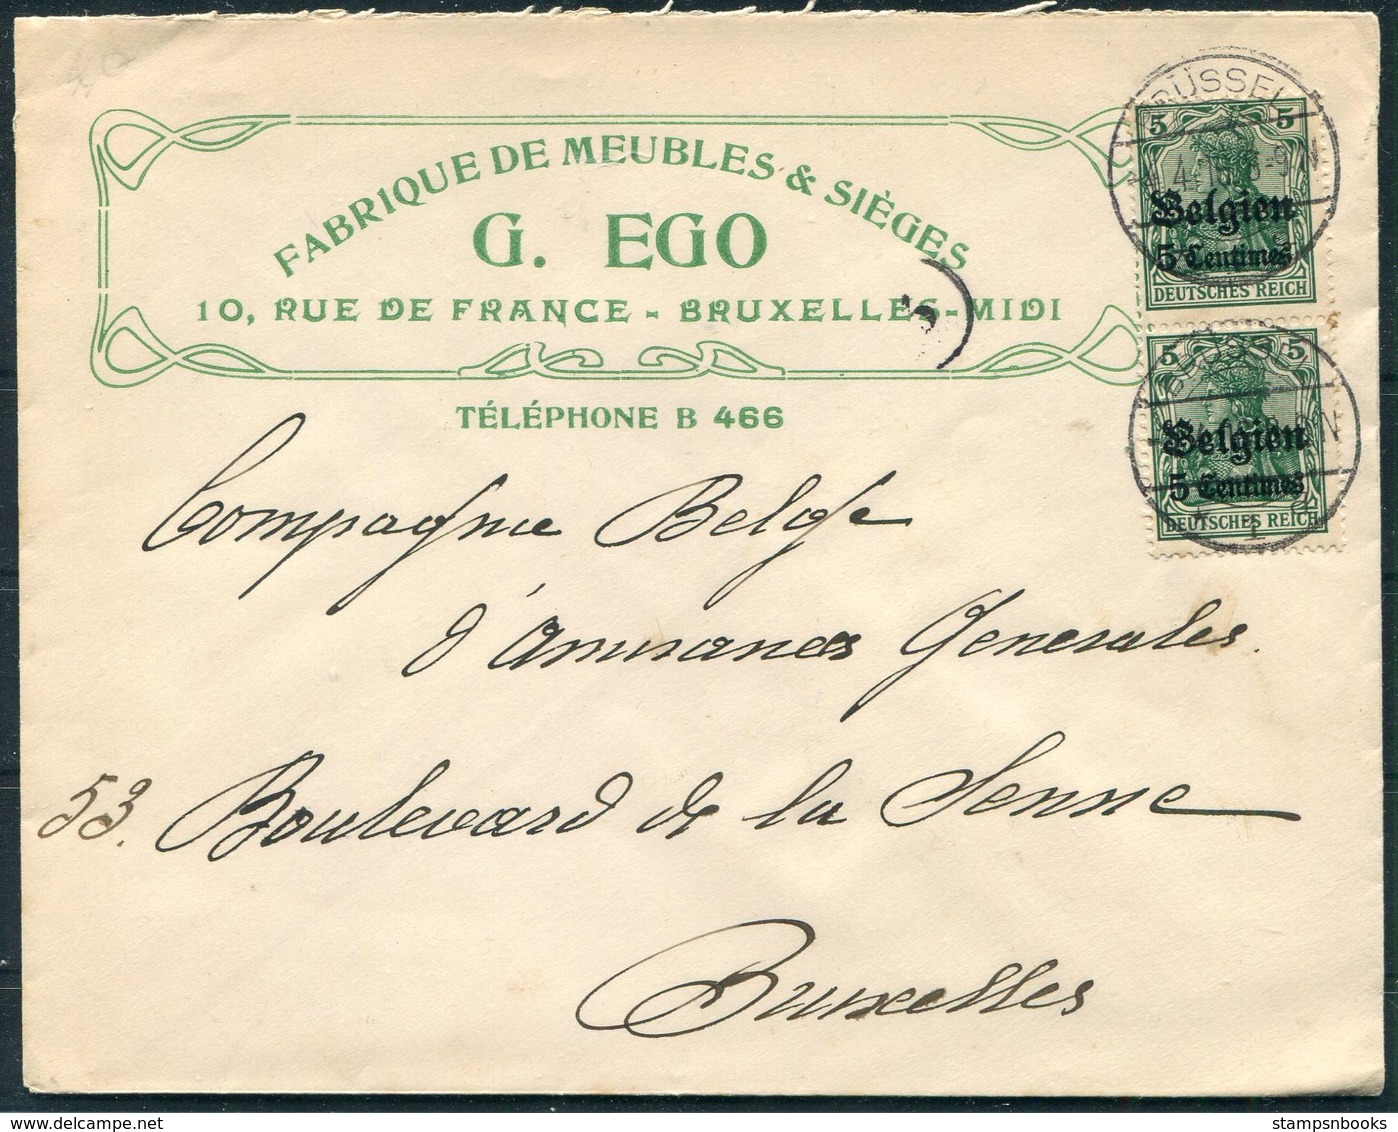 FABRIQUE DE MEUBLES & SIÈGES
G. EGO
10, RUE DE FRANCE - BRUXELLES-MIDI
TÉLÉPHONE B 466
BRÜSSEL
5 5
Belgien
5 Centimes
DEUTSCHES REICH
5 5
Belgien
5 Centimes
DEUTSCHES REICH
1
Compagnie Belge
d'Assurances Generales.
53. Boulevard de la Senne
Bruxelles
stampsnbooks